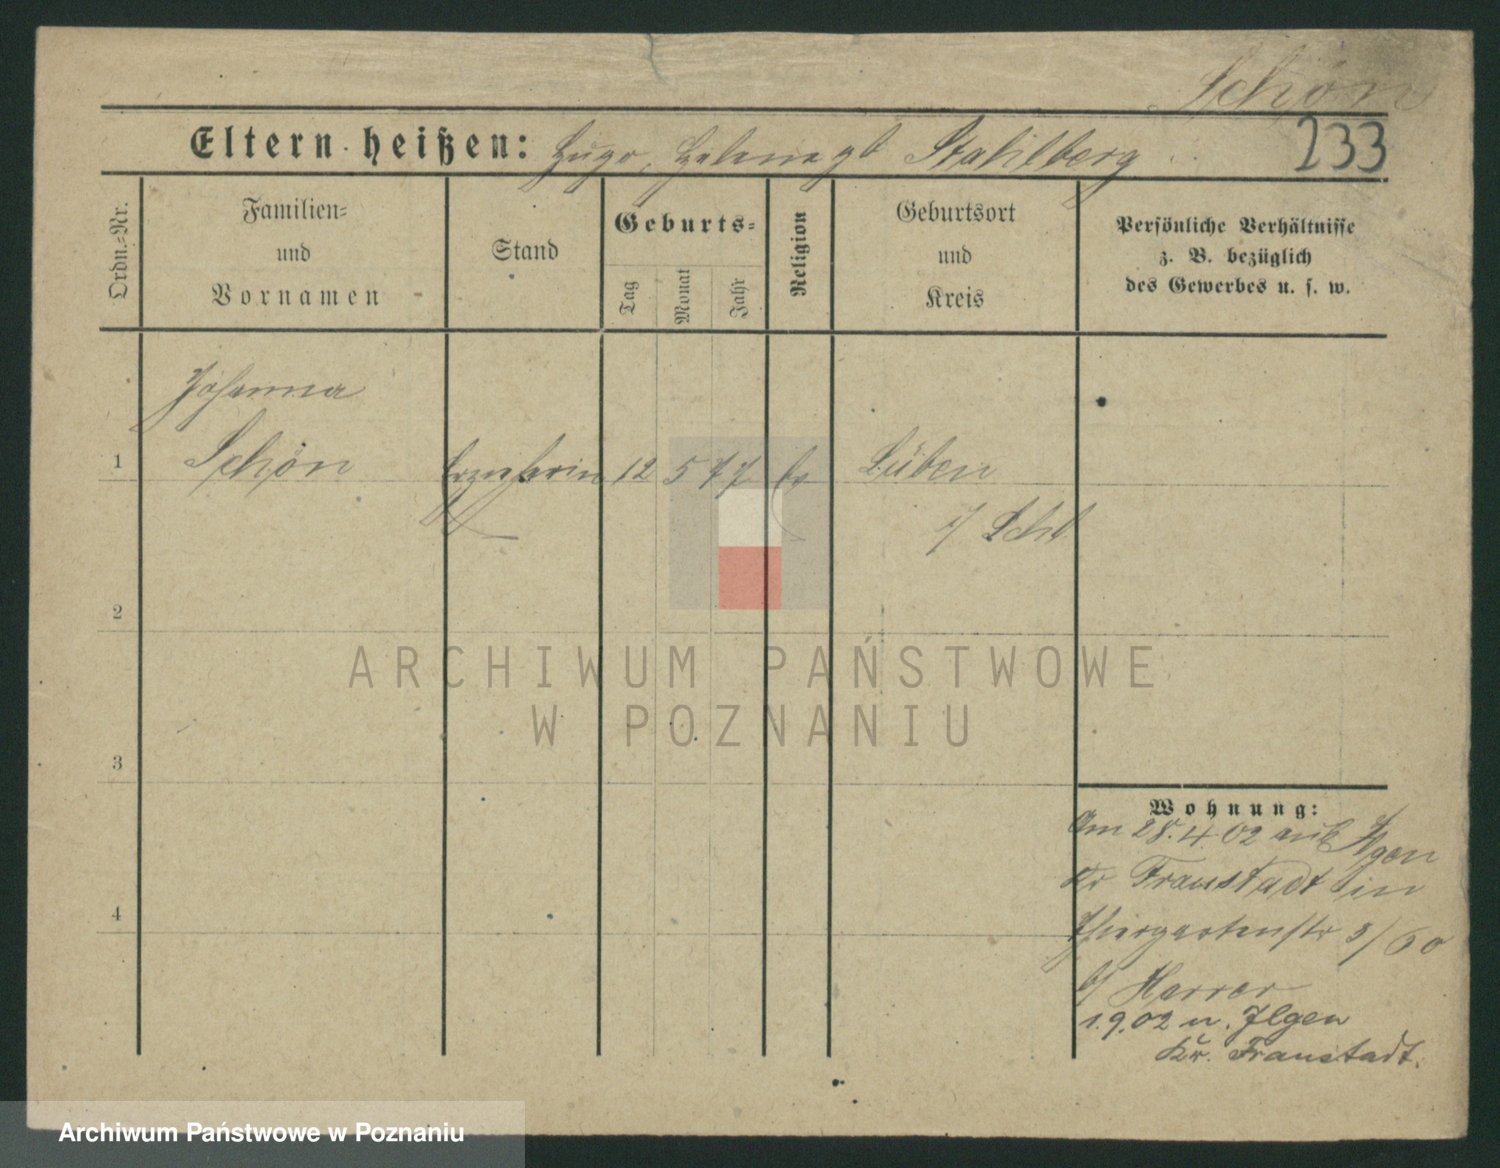 Schön
233
Eltern heißen: Hugo, Helene gb Stahlberg
Ordn.=Nr.
Familien=
und
Vornamen
Stand
Geburts=
Tag
Monat
Jahr
Religion
Geburtsort
und
Kreis
Persönliche Verhältnisse
z. B. bezüglich
des Gewerbes u. s. w.
Johanna
1 Schön Erzieherin 12 5 77 ev Lüben
i/ Schl
2
3
4
Wohnung:
Am 28.4 02 aus Ilgen
Kr Fraustadt in
Thiergartenstr 3/60
b/ Harrer
1.9.02 n. Ilgen
Kr. Fraustadt.
ARCHIWUM PAŃSTWOWE
W POZNANIU
Archiwum Państwowe w Poznaniu